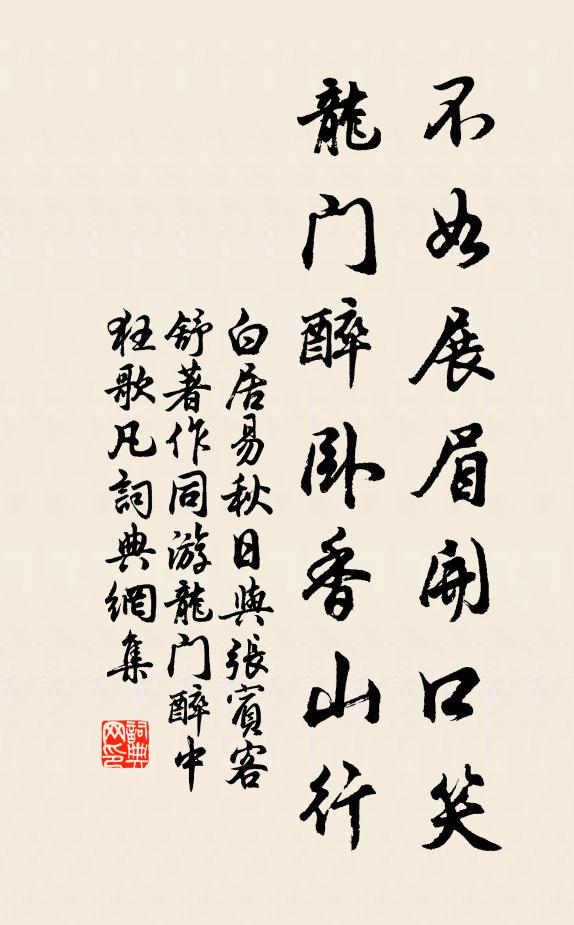 不如展眉開口笑
龍門醉卧香山行
白居易秋日與張賓客
舒著作同游龍門醉中
狂歌凡詞典網集
詞典
网印